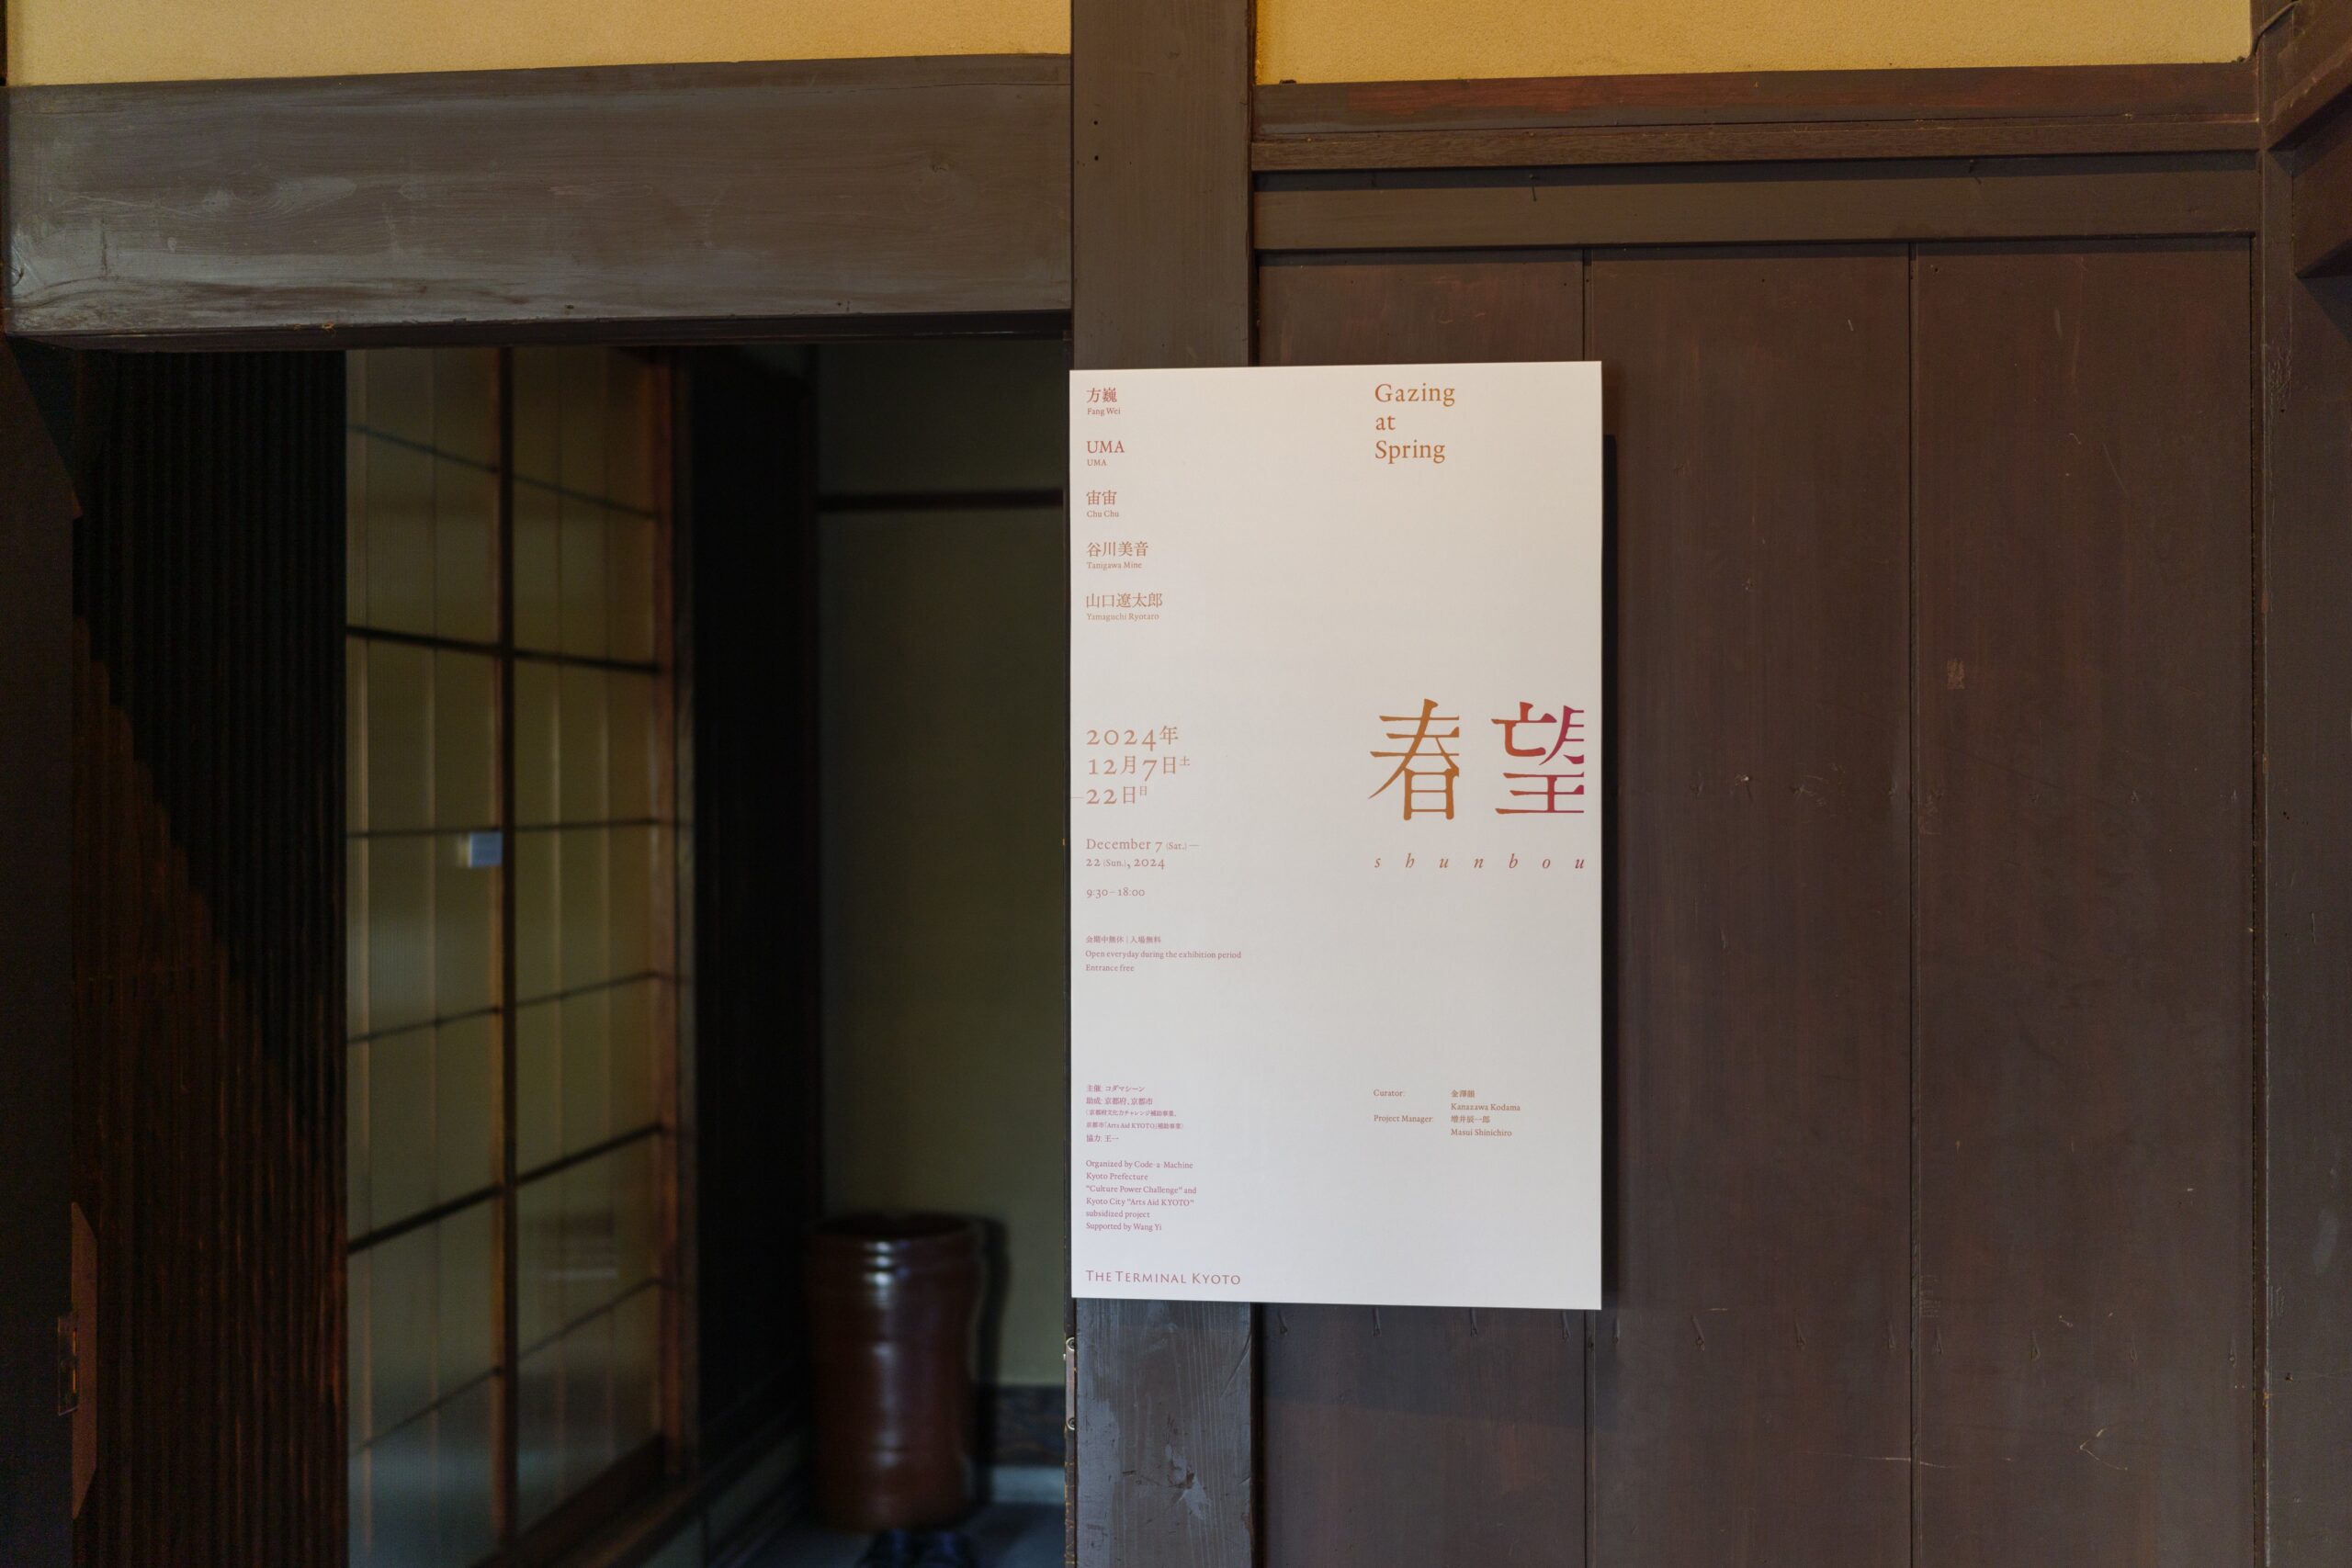 方巍
Fang Wei
UMA
UMA
宙宙
Chu Chu
谷川美音
Tanigawa Mine
山口遼太郎
Yamaguchi Ryotaro
Gazing
at
Spring
2024年
12月7日土
—22日日
December 7 (Sat.) —
22 (Sun.), 2024
9:30–18:00
春望
shunbou
会期中無休 | 入場無料
Open everyday during the exhibition period
Entrance free
主催: コダマシーン
助成: 京都府、京都市
(京都府文化力チャレンジ補助事業、
京都市「Arts Aid KYOTO」補助事業)
協力: 王一
Organized by Code-a-Machine
Kyoto Prefecture
"Culture Power Challenge" and
Kyoto City "Arts Aid KYOTO"
subsidized project
Supported by Wang Yi
Curator:
金澤韻
Kanazawa Kodama
Project Manager:
増井辰一郎
Masui Shinichiro
THE TERMINAL KYOTO